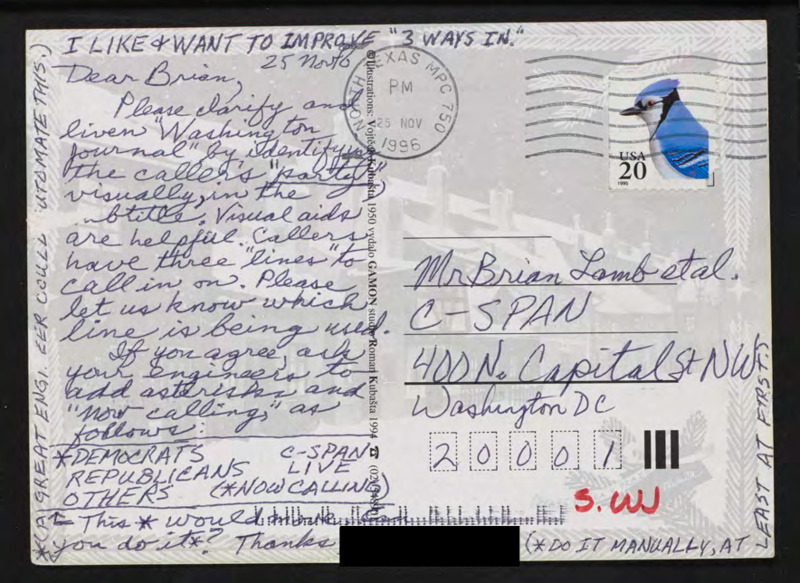 I LIKE & WANT TO IMPROVE "3 WAYS IN."
25 Nov 6
Dear Brian,
Please clarify and
liven "Washington
Journal" by identifying
the caller's "party"
visually, in the
btitles. Visual aids
are helpful. Callers
have three "lines" to
call in on. Please
let us know which
line is being used.
If you agree, ask
your engineers to
add asterisks and
"now calling," as
follows:
*DEMOCRATS C-SPAN
REPUBLICANS LIVE
OTHERS (*NOW CALLING)
This * would
you do it*? Thanks
(*DO IT MANUALLY, AT
LEAST AT FIRST.)
*(A) GREAT ENGI. EER COULD UTOMATE THIS.)
©Illustrations: Vojtěch Kubašta 1950 vydalo GAMON, studio Roman Kubašta 1994 ☎ (02)
NORTH TEXAS MPC 750
PM
25 NOV
1996
USA
20
1995
Mr Brian Lamb et al.
C-SPAN
400 N. Capital St NW
Washington DC
20001
S.W